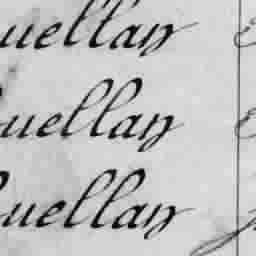 uellan
uellan
uellan